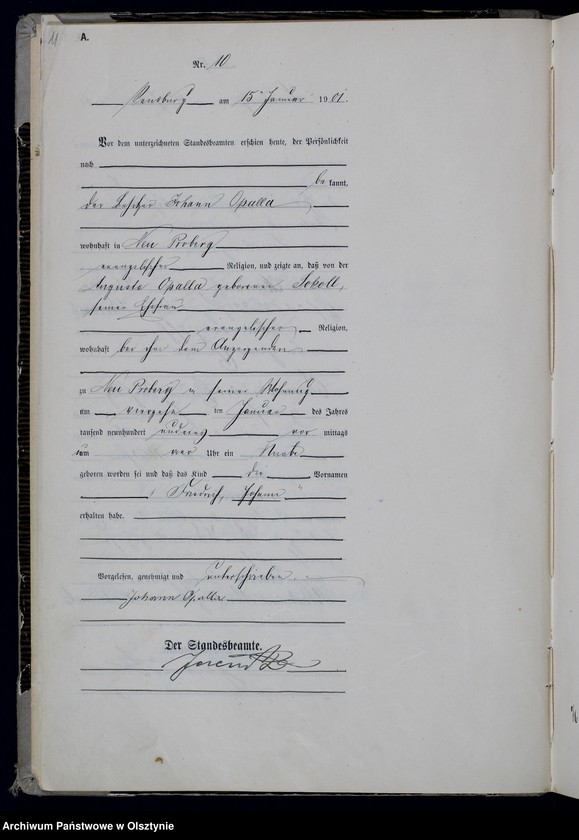 11
A.
Nr. 10
Sensburg am 15 Januar 1901.
Vor dem unterzeichneten Standesbeamten erschien heute, der Persönlichkeit
nach
be kannt,
der Besitzer Johann Opalla
wohnhaft in Neu Proberg
evangelischer Religion, und zeigte an, daß von der
Auguste Opalla geborenen Sokoll,
seiner Ehefrau
evangelischer Religion,
wohnhaft bei ihm dem Anzeigenden
zu Neu Proberg in seiner Wohnung
am vierzehn ten Januar des Jahres
tausend neunhundert und eins vor mittags
um vier Uhr ein Knabe
geboren worden sei und daß das Kind die Vornamen
Johann
erhalten habe.
Vorgelesen, genehmigt und unterschrieben
Johann Opalla
Der Standesbeamte.
Archiwum Państwowe w Olsztynie